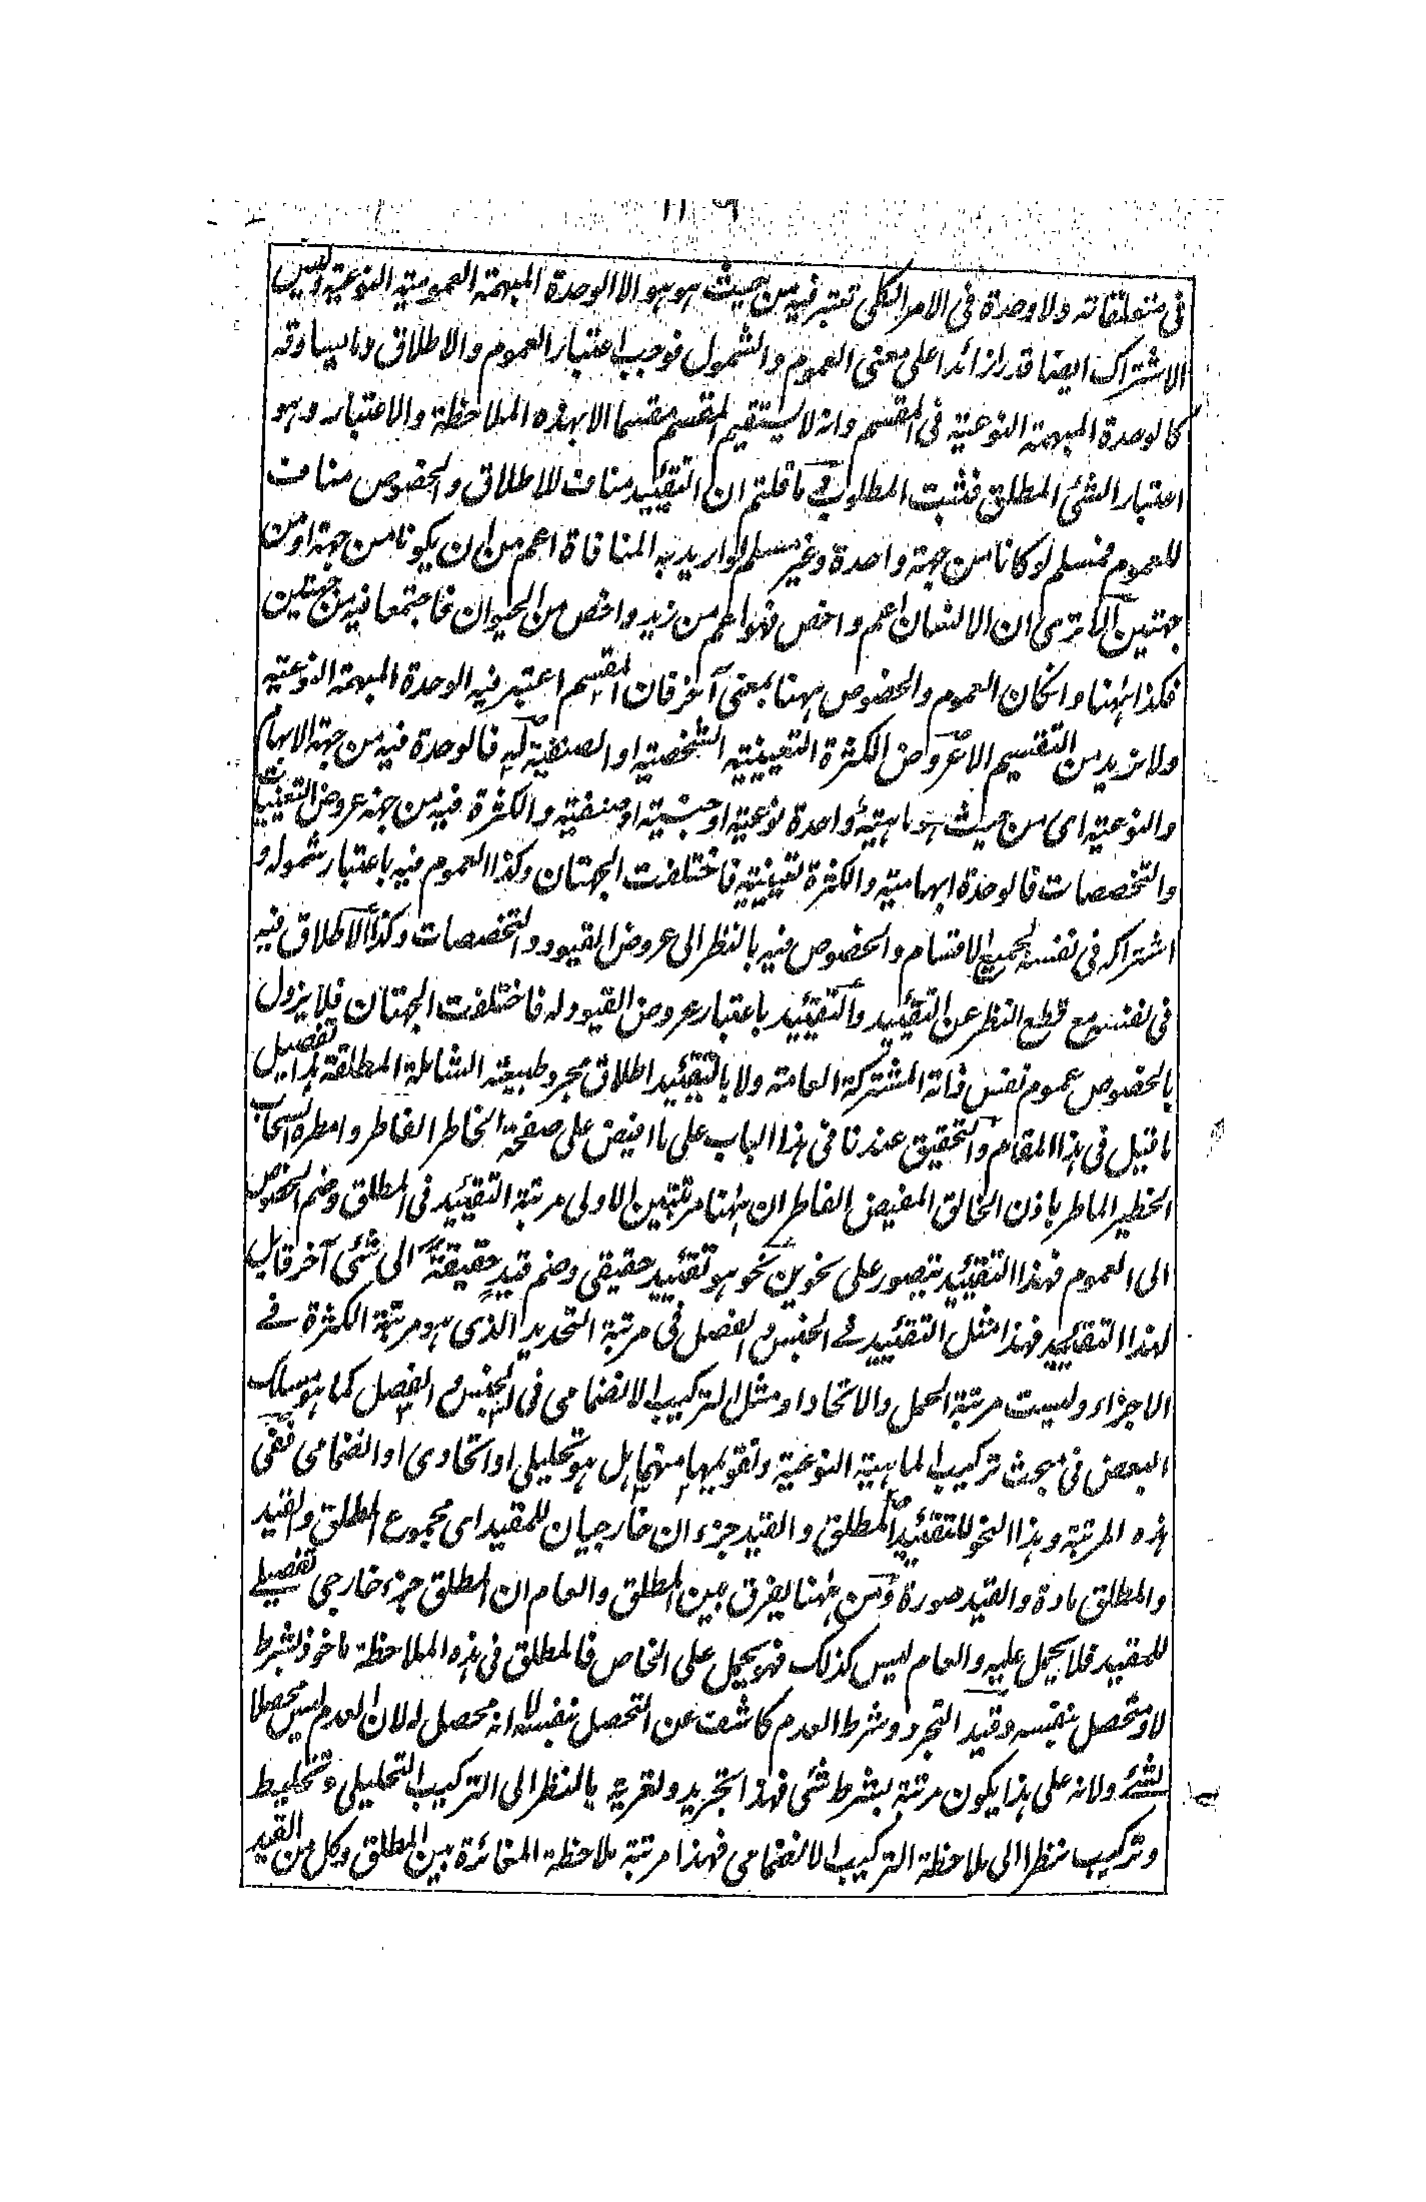 فى متعلقاته ولا وحدة فى الامر الكلى تعتبر فيه من حيث هو هو الا الوحدة المبهمة العمومية النوعية وليس
الاشتراك ايضا قدرا زائدا على معنى العموم والشمول فوجب اعتبار العموم والاطلاق وما يساوقه
كالوحدة المبهمة النوعية فى المقسم وانه لا يستقيم المقسم مقسما الا بهذه الملاحظة والاعتبار وهو
اعتبار الشئ المطلق فثبت المطلوب فما قلتم ان التقييد مناف للاطلاق والخصوص مناف
للعموم فمسلم لو كانا من جهة واحدة وغير مسلم لو اريد به المنافاة اعم من ان يكونا من جهة او من
جهتين الا ترى ان الانسان اعم واخص فهو اعم من زيد واخص من الحيوان فاجتمعا فيه من جهتين
فكذا ههنا وانكان العموم والخصوص ههنا بمعنى آخر فان المقسم اعتبر فيه الوحدة المبهمة النوعية
ولا نريد من التقسيم الا عروض الكثرة التعينية الشخصية او الصنفية له فالوحدة فيه من جهة الابهام
والنوعية اى من حيث هو ماهية واحدة نوعية او جنسية او صنفية والكثرة فيه من جهة عروض التعينات
والتخصصات فالوحدة ابهامية والكثرة تعينية فاختلفت الجهتان وكذا العموم فيه باعتبار شموله و
اشتراكه فى نفسه لجميع الاقسام والخصوص فيه بالنظر الى عروض القيود والتخصصات وكذا الاطلاق فيه
فى نفسه مع قطع النظر عن التقييد والتقييد باعتبار عروض القيود له فاختلفت الجهتان فلا يزول
بالخصوص عموم نفس ذاته المشتركة العامة ولا بالتقييد اطلاق مجرد طبيعته الشاملة المطلقة هذا تفصيل
ما قيل فى هذا المقام والتحقيق عندنا فى هذا الباب على ما افيض على صفحة الخاطر الفاطر وامطره السحاب
الخطير الماطر باذن الخالق المفيض الفاطر ان ههنا مرتبتين الاولى مرتبة التقييد فى المطلق وضم الخصوص
الى العموم فهذا التقييد يتصور على نحوين نحو هو تقييد حقيقى وضم قيد حقيقة الى شئ آخر قابل
لهذا التقييد فهذا مثل التقييد فى الجنس والفصل فى مرتبة التحديد الذى هو مرتبة الكثرة فى
الاجزاء وليست مرتبة الحمل والاتحاد او مثل التركيب الانضمامى فى الجنس والفصل كما هو مسلك
البعض فى بحث تركيب الماهية النوعية وتقويمها منهما هل هو تحليلى او اتحادى او انضمامى ففى
هذه المرتبة وهذا النحو للتقييد المطلق والقيد جزءان خارجيان للمقيد اى مجموع المطلق والقيد
والمطلق مادة والقيد صورة ومن ههنا يفرق بين المطلق والعام ان المطلق جزء خارجى تفصيلى
للمقيد فلا يحمل عليه والعام ليس كذلك فهو يحمل على الخاص فالمطلق فى هذه الملاحظة ماخوذ بشرط
لا ومتحصل بنفسه وقيد التجرد وشرط العدم كاشف عن التحصل بنفسه لا انه محصل له لان العدم ليس محصلا
لشئ ولانه على هذا يكون مرتبة بشرط شئ فهذا تجريد وتعرية بالنظر الى التركيب التحليلى وتخليط
وتركيب نظرا الى ملاحظة التركيب الانضمامى فهذا مرتبة ملاحظة المغائرة بين المطلق وكل من القيد